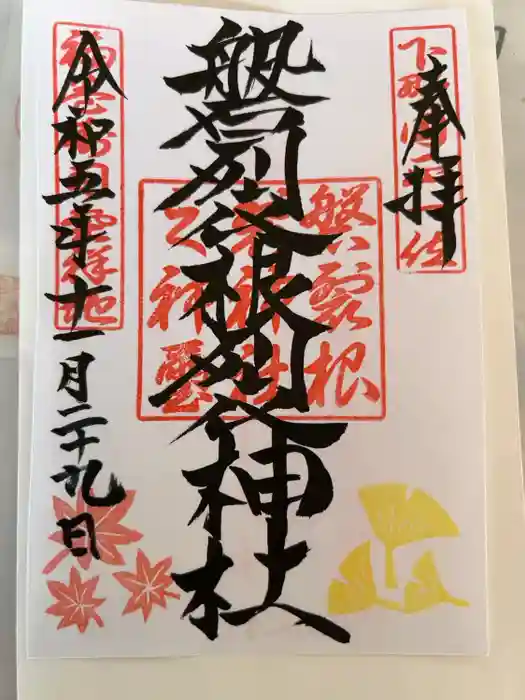 奉拝
磐裂根裂神社
磐裂根
裂神社
之神璽
令和五年十一月二十九日